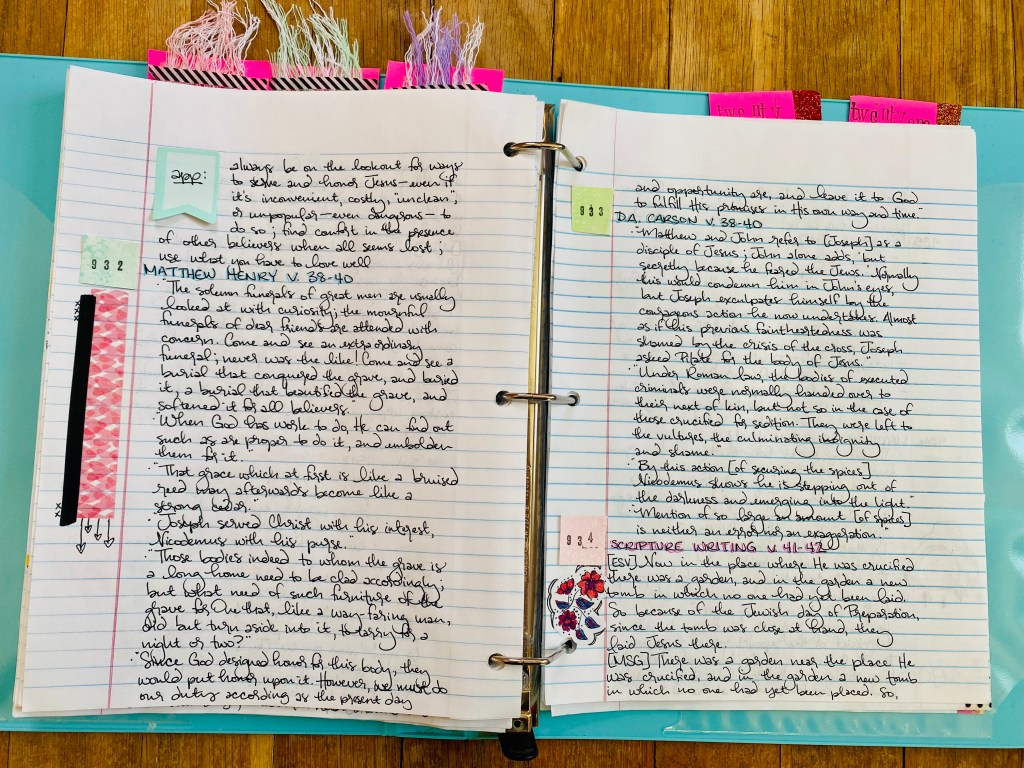 app:
always be on the lookout for ways
to serve and honor Jesus—even if
it's inconvenient, costly, "unclean",
or unpopular—even dangerous—to
do so; find comfort in the presence
of other believers when all seems lost;
use what you have to love well
932
MATTHEW HENRY V. 38-40
·"The solemn funerals of great men are usually
looked at with curiosity; the mournful
funerals of dear friends are attended with
concern. Come and see an extraordinary
funeral; never was the like! Come and see a
burial that conquered the grave, and buried
it, a burial that beautified the grave, and
softened it for all believers."
·"When God has work to do, He can find out
such as are proper to do it, and embolden
them for it."
·"That grace which at first is like a bruised
reed may afterwards become like a
strong cedar."
·"Joseph served Christ with his interest,
Nicodemus with his purse."
·"Those bodies indeed to whom the grave is
a long home need to be clad accordingly;
but what need of such furniture of the
grave for One that, like a way-faring man,
did but turn aside into it, to tarry for a
night or two?"
·"Since God designed honor for this body, they
would put honor upon it. However, we must do
our duty according as the present day
twenty
twentyone
and opportunity are, and leave it to God
to fulfill His promises in His own way and time."
933
D.A. CARSON V. 38-40
·"Matthew and John refer to [Joseph] as a
disciple of Jesus; John alone adds, 'but
secretly because he feared the Jews.' Normally
this would condemn him in John's eyes,
but Joseph exculpates himself by the
courageous action he now undertakes. Almost
as if his previous faintheartedness was
shamed by the crisis of the cross, Joseph
asked Pilate for the body of Jesus."
·"Under Roman law, the bodies of executed
criminals were normally handed over to
their next of kin, but not so in the case of
those crucified for sedition. They were left to
the vultures, the culminating indignity
and shame."
·"By this action [of securing the spices]
Nicodemus shows he is stepping out of
the darkness and emerging into the light."
·"Mention of so large an amount [of spices]
is neither an error nor an exaggeration."
934
SCRIPTURE WRITING V. 41-42
[ESV] Now in the place where He was crucified
there was a garden, and in the garden a new
tomb in which no one had yet been laid.
So because of the Jewish day of Preparation,
since the tomb was close at hand, they
laid Jesus there.
[MSG] There was a garden near the place He
was crucified, and in the garden a new tomb
in which no one had yet been placed. So,